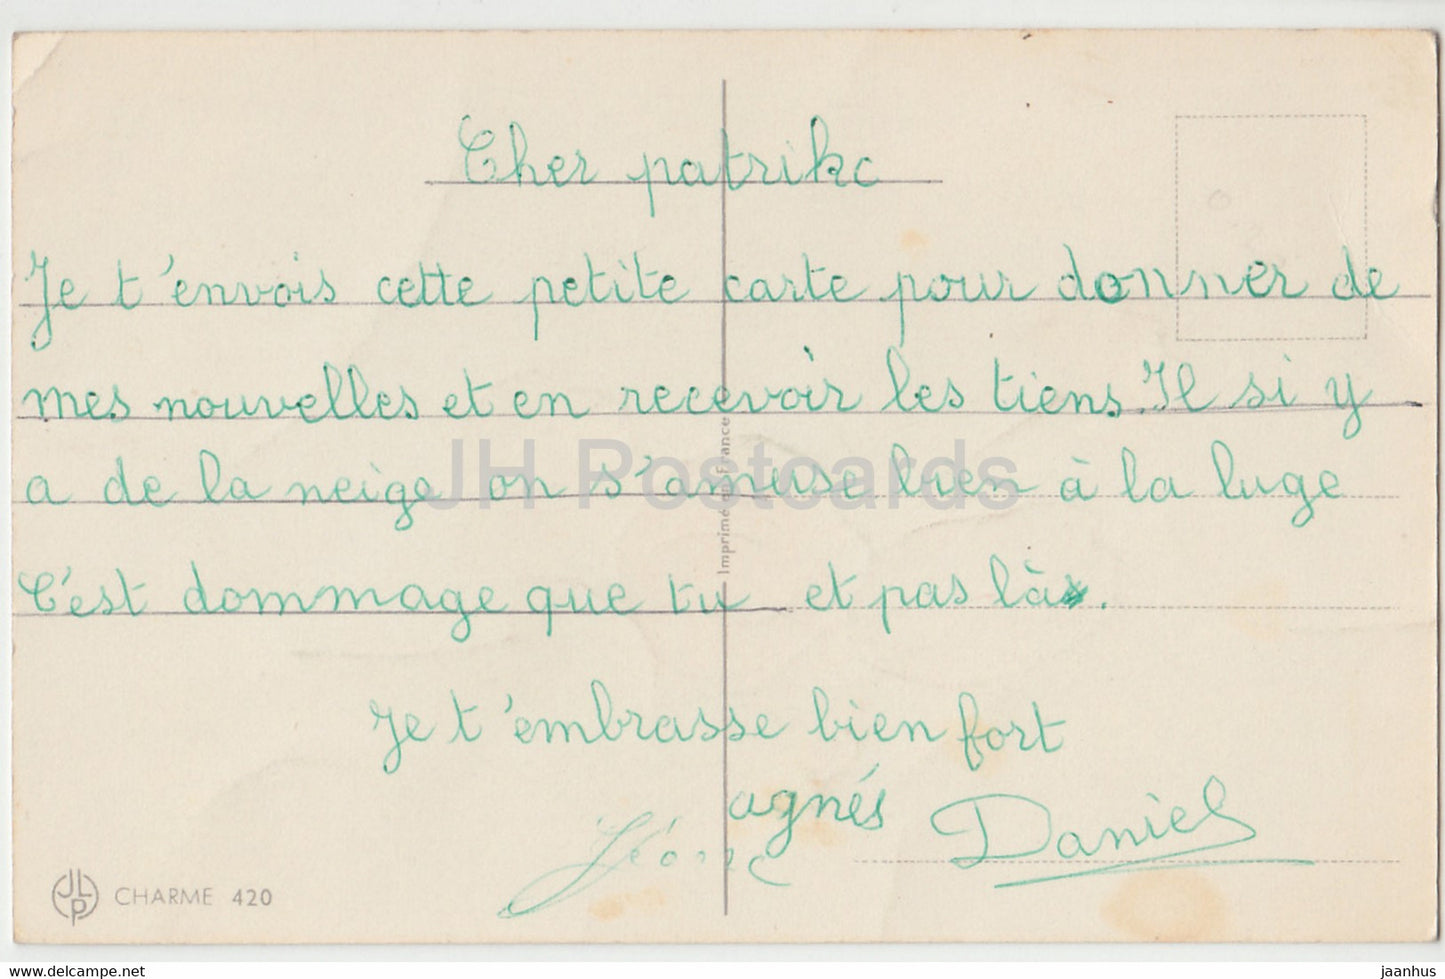 Cher patrikc
Je t'envois cette petite carte pour donner de
mes nouvelles et en recevoir les tiens. Il si y
a de la neige on s'amuse bien à la luge
C'est dommage que tu et pas là.
Je t'embrasse bien fort
agnés
Daniel
Imprimé en France
JLP CHARME 420
JH Postcards
www.jhpostcards.com
jaanhus